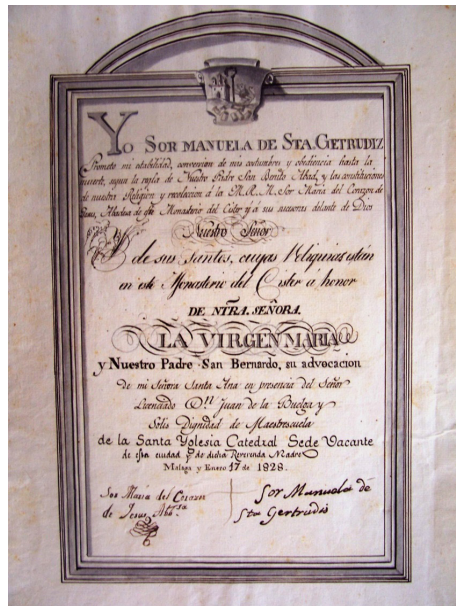 Yo SOR MANUELA DE STA. GETRUDIZ
Prometo mi estabilidad, conversion de mis costumbres y obediencia hasta la
muerte, segun la regla de Nuestro Padre San Benito Abad, y las constituciones
de nuestra Religion y recoleccion á la M. R. M. Sor Maria del Corazon de
Jesus, Abadesa de este Monasterio del Cister y á sus sucesoras delante de Dios
Nuestro Señor
Y de sus Santos, cuyas Reliquias están
en este Monasterio del Cister á honor
DE NTRA. SEÑORA.
LA VIRGEN MARIA
y Nuestro Padre San Bernardo, su advocacion
de mi Señora Santa Ana en presencia del Señor
Licenciado Dn. Juan de la Buelga y
Solis Dignidad de Maestrescuela
de la Santa Yglesia Catedral Sede Vacante
de esta ciudad y de dicha Reverenda Madre
Malaga y Enero 17 de 1828.
Sor Maria del Corazon
de Jesus Abtsa
Sor Manuela de
Sta Gertrudis